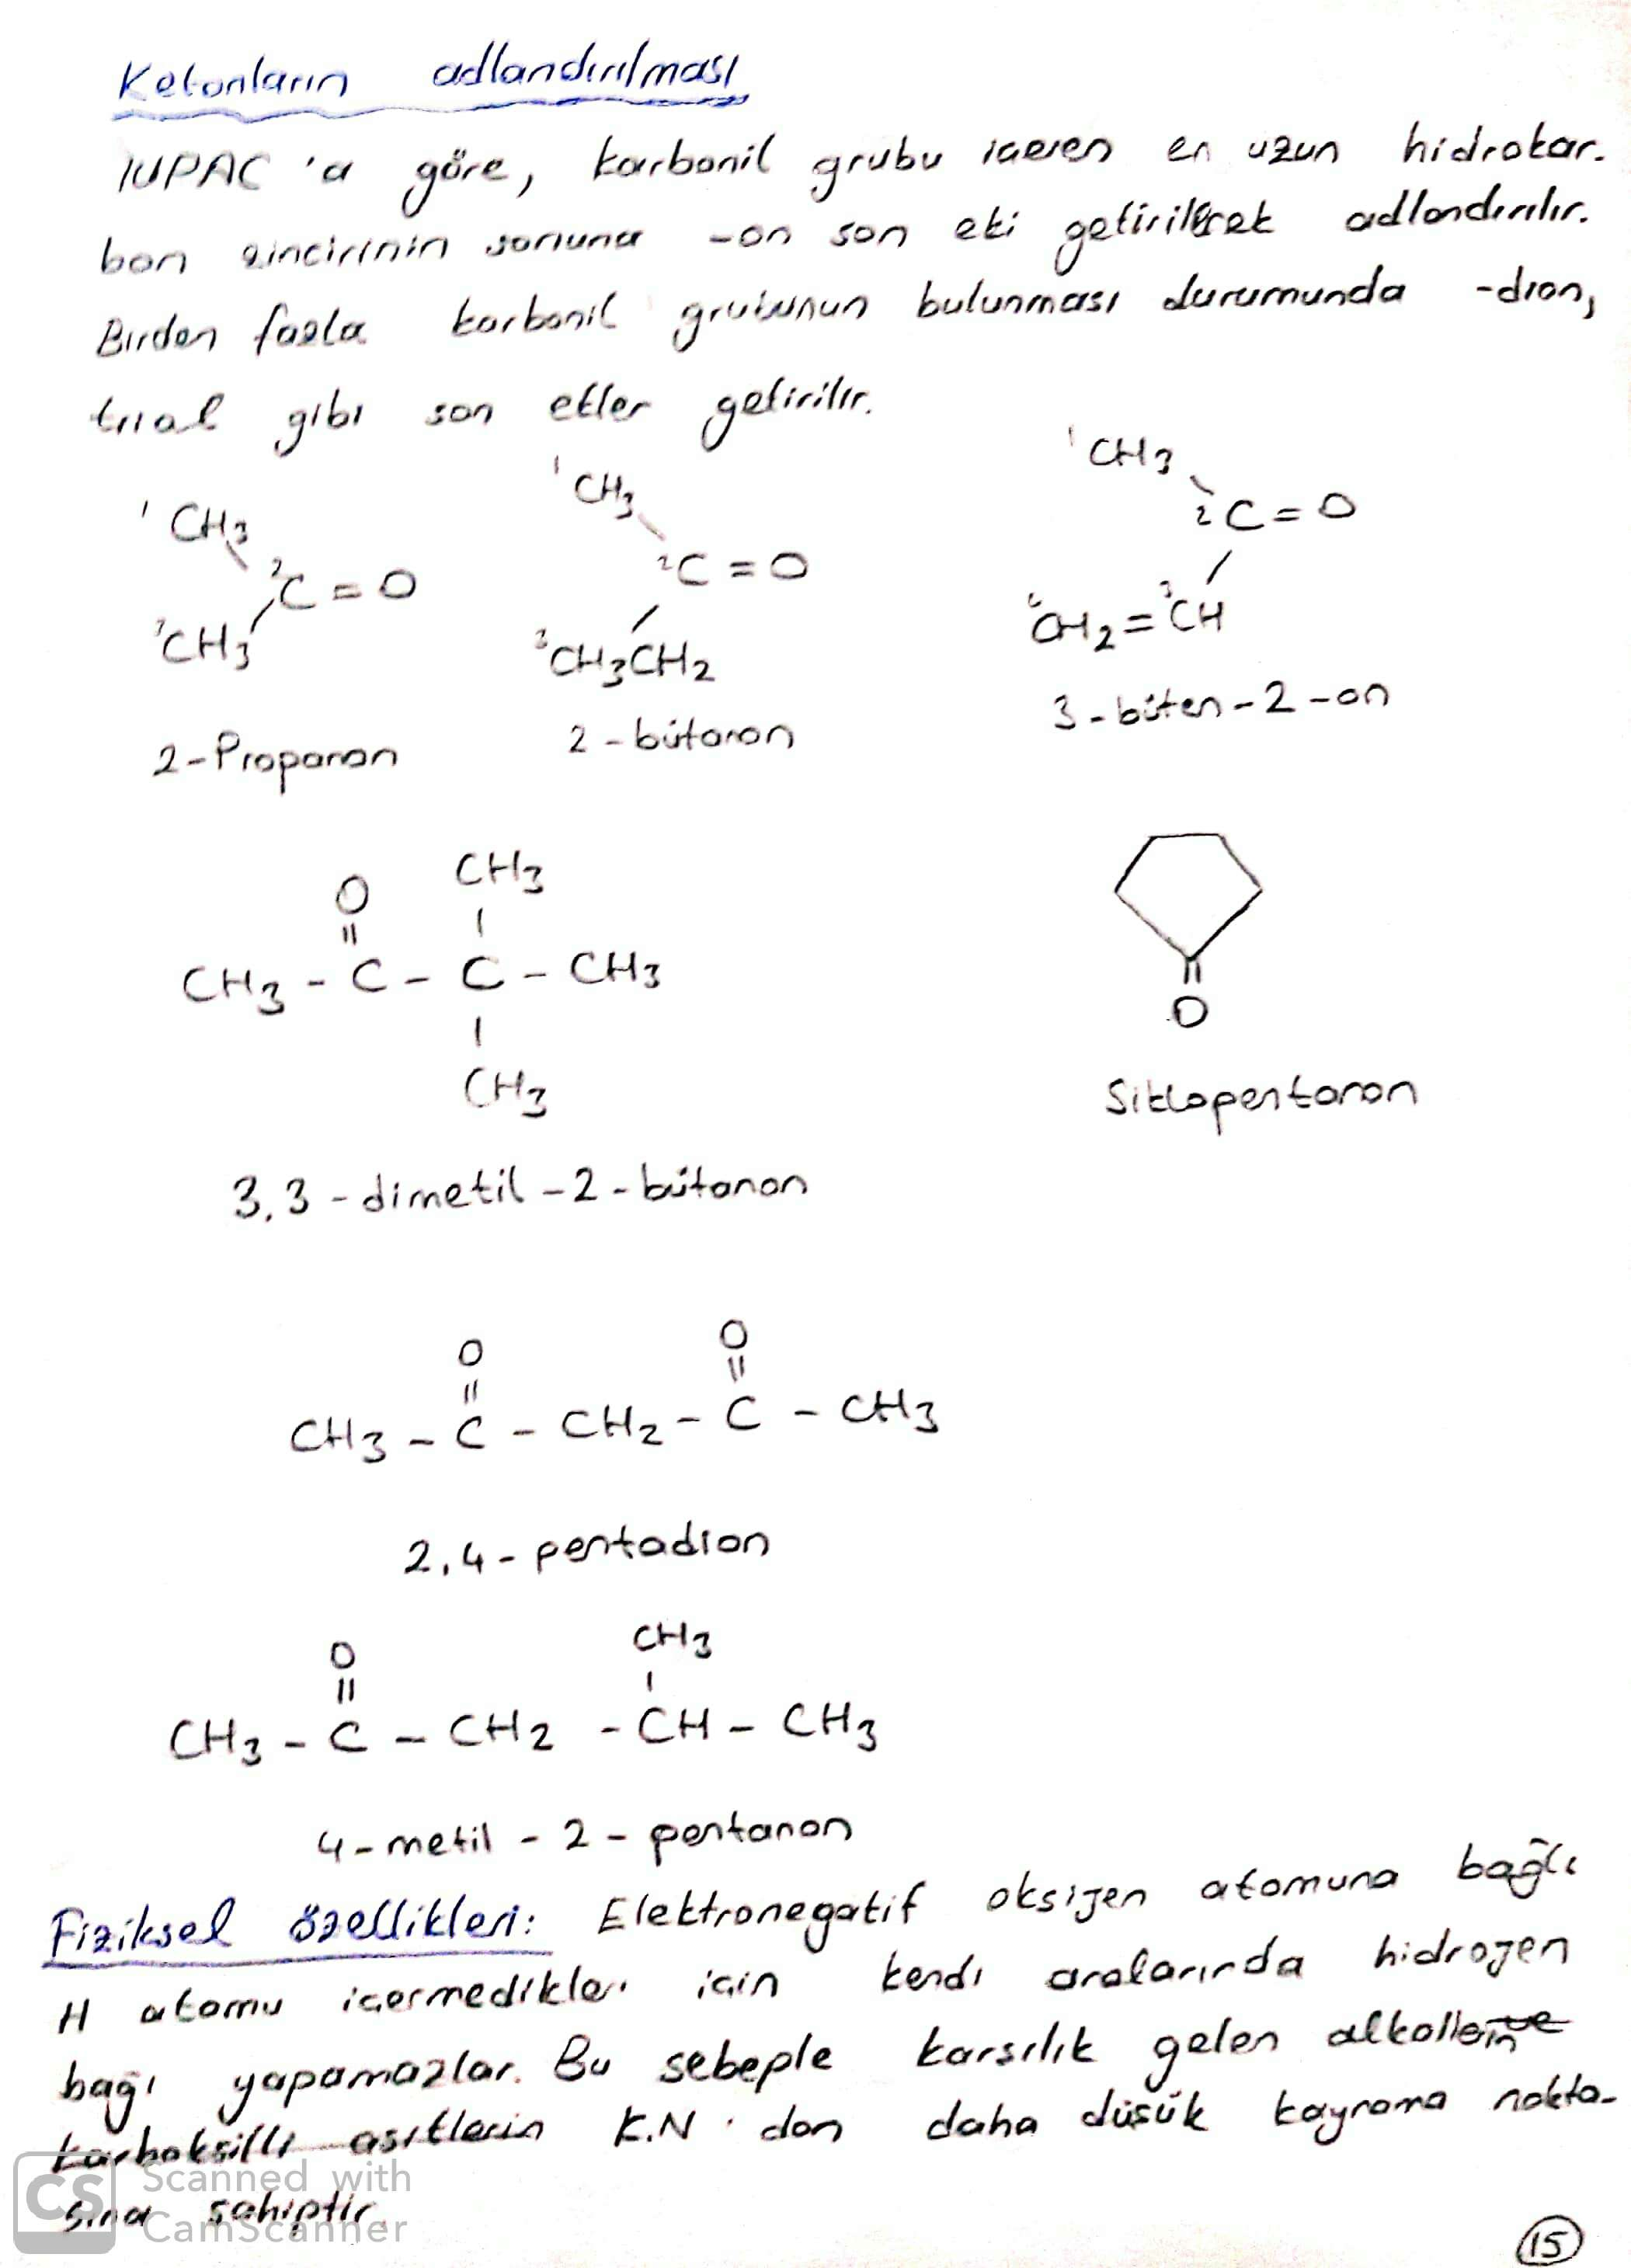 Ketonların adlandırılması
IUPAC 'a göre, karbonil grubu içeren en uzun hidrokar-
bon zincirinin sonuna -on son eki getirilerek adlandırılır.
Birden fazla karbonil grubunun bulunması durumunda -dion,
trial gibi son ekler getirilir.
1 CH3
2 C = O
3 CH3
2-Propanon
1 CH3
2 C = O
3 CH3CH2
2-bütanon
1 CH3
2 C = O
4 CH2 = 3 CH
3-büten-2-on
O CH3
CH3 - C - C - CH3
CH3
3,3-dimetil-2-bütanon
O
Siklopentanon
O O
CH3 - C - CH2 - C - CH3
2,4-pentadion
O CH3
CH3 - C - CH2 - CH - CH3
4-metil-2-pentanon
Fiziksel özellikleri: Elektronegatif oksijen atomuna bağlı
H atomu içermedikleri için kendi aralarında hidrojen
bağı yapamazlar. Bu sebeple karşılık gelen alkollerin ve
karboksilli asitlerin K.N'dan daha düşük kaynama nokta-
sına sahiptir.
CS Scanned with
CamScanner
15